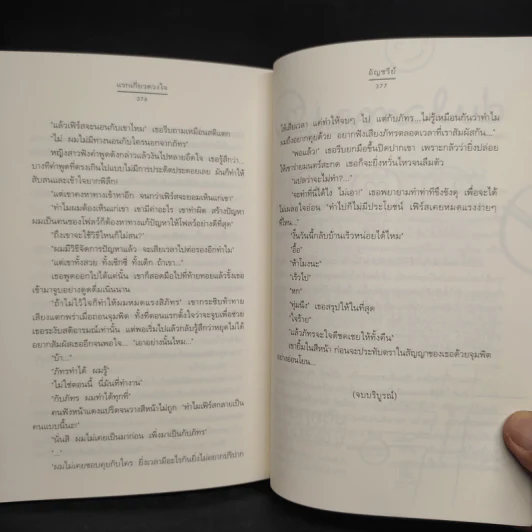 แรกเกี้ยวดวงใจ
376
"แล้วเฟิร์สจะนอนกับเขาไหม" เธอรีบถามเหมือนสติแตก
"ไม่ ผมไม่มีทางนอนกับใครนอกจากภัทร"
หญิงสาวฟังคำพูดดังกล่าวแล้วเงินไปหลายอึดใจ เธอรู้สึกว่า...
บางทีคำพูดที่ตรงเกินไปแบบไม่มีการประดิดประดอยเลย มันก็ทำให้
สับสนและเข้าใจยากพิลึก!
"แต่เขาคงหาทางเข้าหาอีก จนกว่าเฟิร์สจะยอมเห็นแก่เขา"
"ทำไมผมต้องเห็นแก่เขา เขามีค่าอะไร เขาทำผิด สร้างปัญหา
ผมเป็นคนของโฟลว์ก็ต้องหาทางแก้ปัญหาให้โฟลว์อย่างดีที่สุด"
"ถึงเขาจะใช้วิธีไหนก็ไม่สน?"
"ผมมีวิธีจัดการปัญหาแล้ว จะเสียเวลาไปต่อรองอีกทำไม"
"แต่เขาทั้งสวย ทั้งเซ็กซี่ ทั้งเด็ก ถ้าเขา..."
เธอพูดออกไปได้แค่นั้น เขาก็สอดมือไปที่ท้ายทอยแล้วรั้งเธอ
เข้ามาจูบอย่างดูดดื่มเนิ่นนาน
"ถ้าไม่ไว้ใจก็ทำให้ผมหมดแรงสิภัทร" เขากระซิบท้าทาย
เสียงแตกพร่าเมื่อถอนจุมพิต ทั้งที่ตอนแรกตั้งใจว่าจะจูบเพื่อช่วย
เธอระงับสติอารมณ์เท่านั้น แต่พอเริ่มไปแล้วกลับรู้สึกว่าหยุดไม่ได้
อยากสัมผัสเธออีกจนพอใจ... "เอาอย่างนั้นไหม..."
"บ้า..."
"ภัทรทำได้ ผมรู้"
"ไม่ใช่ตอนนี้ นี่มันที่ทำงาน"
"กับภัทร ผมทำได้ทุกที่"
คนฟังหน้าแดงแปร๊ดจนวางสีหน้าไม่ถูก "ทำไมเฟิร์สกลายเป็น
คนแบบนี้นะ"
"นั่นสิ ผมไม่เคยเป็นมาก่อน เพิ่งมาเป็นกับภัทร"
"..."
"ผมไม่เคยชอบคุยกับใคร ยิ่งเวลามีอะไรกันยิ่งไม่อยากรีบปาก
อัญชรีย์
377
ให้เสียเวลา แต่ทำให้จบๆ ไป แต่กับภัทร...ไม่รู้เหมือนกันว่าทำไม
ผมถึงอยากคุยด้วย อยากฟังเสียงภัทรตลอดเวลาที่เราสัมผัสกัน..."
"พอแล้ว!" เธอรีบยกมือขึ้นปิดปากเขา เพราะกลัวว่ายิ่งปล่อย
ให้เขาร่ายมนตร์สะกด เธอก็จะยิ่งหวั่นไหวจนลืมตัว
"แปลว่าจะไม่ทำ?..."
"จะทำที่นี่ได้ไง ไม่เอา!" เธอพยายามทำท่าขึงขังดุ เพื่อจะได้
ไม่เผลอใจอ่อน "ทำไปก็ไม่มีประโยชน์ เฟิร์สเคยหมดแรงง่ายๆ
ที่ไหน..."
"งั้นวันนี้กลับบ้านเร็วหน่อยได้ไหม"
"อื้อ"
"ห้าโมงนะ"
"เร็วไป"
"หก"
"ทุ่มนึง" เธอสรุปให้ในที่สุด
"ใจร้าย"
"แล้วภัทรจะใจดีชดเชยให้ทั้งคืน"
เขายิ้มในสีหน้า ก่อนจะประทับตราในสัญญาของเธอด้วยจุมพิต
อย่างอ่อนโยน...
(จบบริบูรณ์)